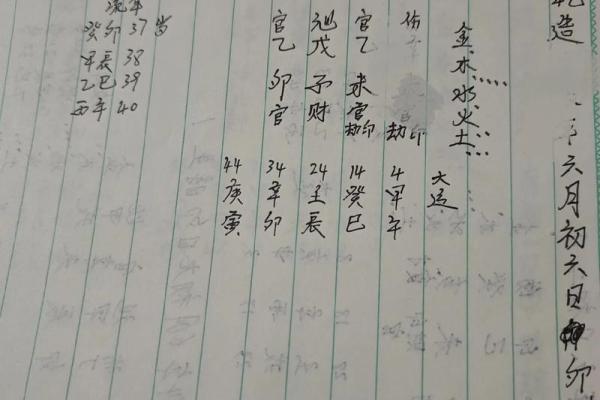 乾造
六月初六日 卯
金
木.....
水
火
土...
伤
劫 印
官乙 未官劫印
戊 子财
官乙 卯官
大运
4 甲午
14 癸巳
24 壬辰
34 辛卯
44 庚寅
流年
癸卯 37 岁
甲辰 38
乙巳 39
丙午 40